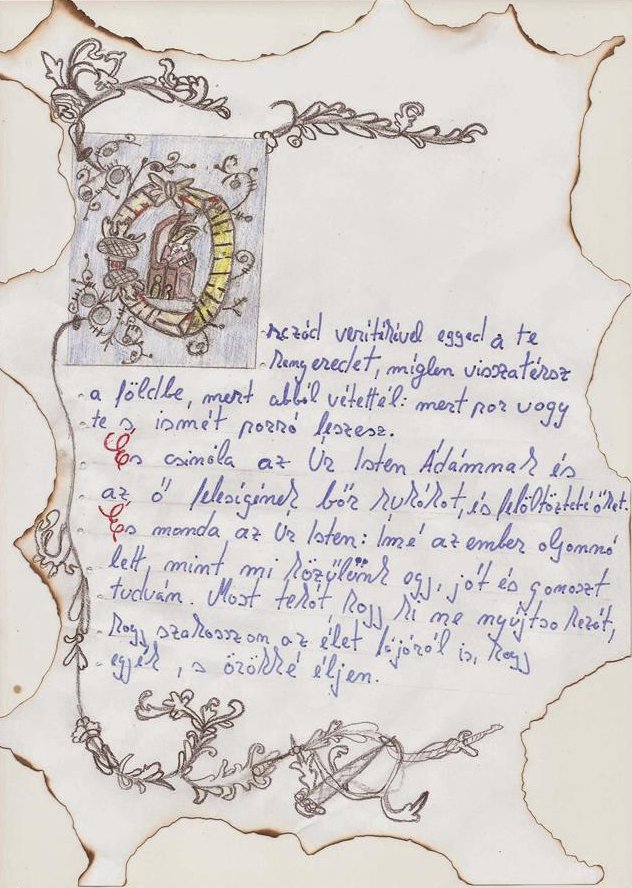 O
rczád verítékével egyed a te
kenyeredet, míglen visszatérsz
a földbe, mert abból vétettél: mert por vagy
te s ismét porrá leszesz.
És csinála az Úr Isten Ádámnak és
az ő feleségének bőr ruhákat, és felöltözteté őket.
És monda az Úr Isten: Ímé az ember olyanná
lett, mint mi közülünk egy, jót és gonoszt
tudván. Most tehát, hogy ki ne nyújtsa kezét,
hogy szakasszon az élet fájáról is, hogy
egyék, s örökké éljen.